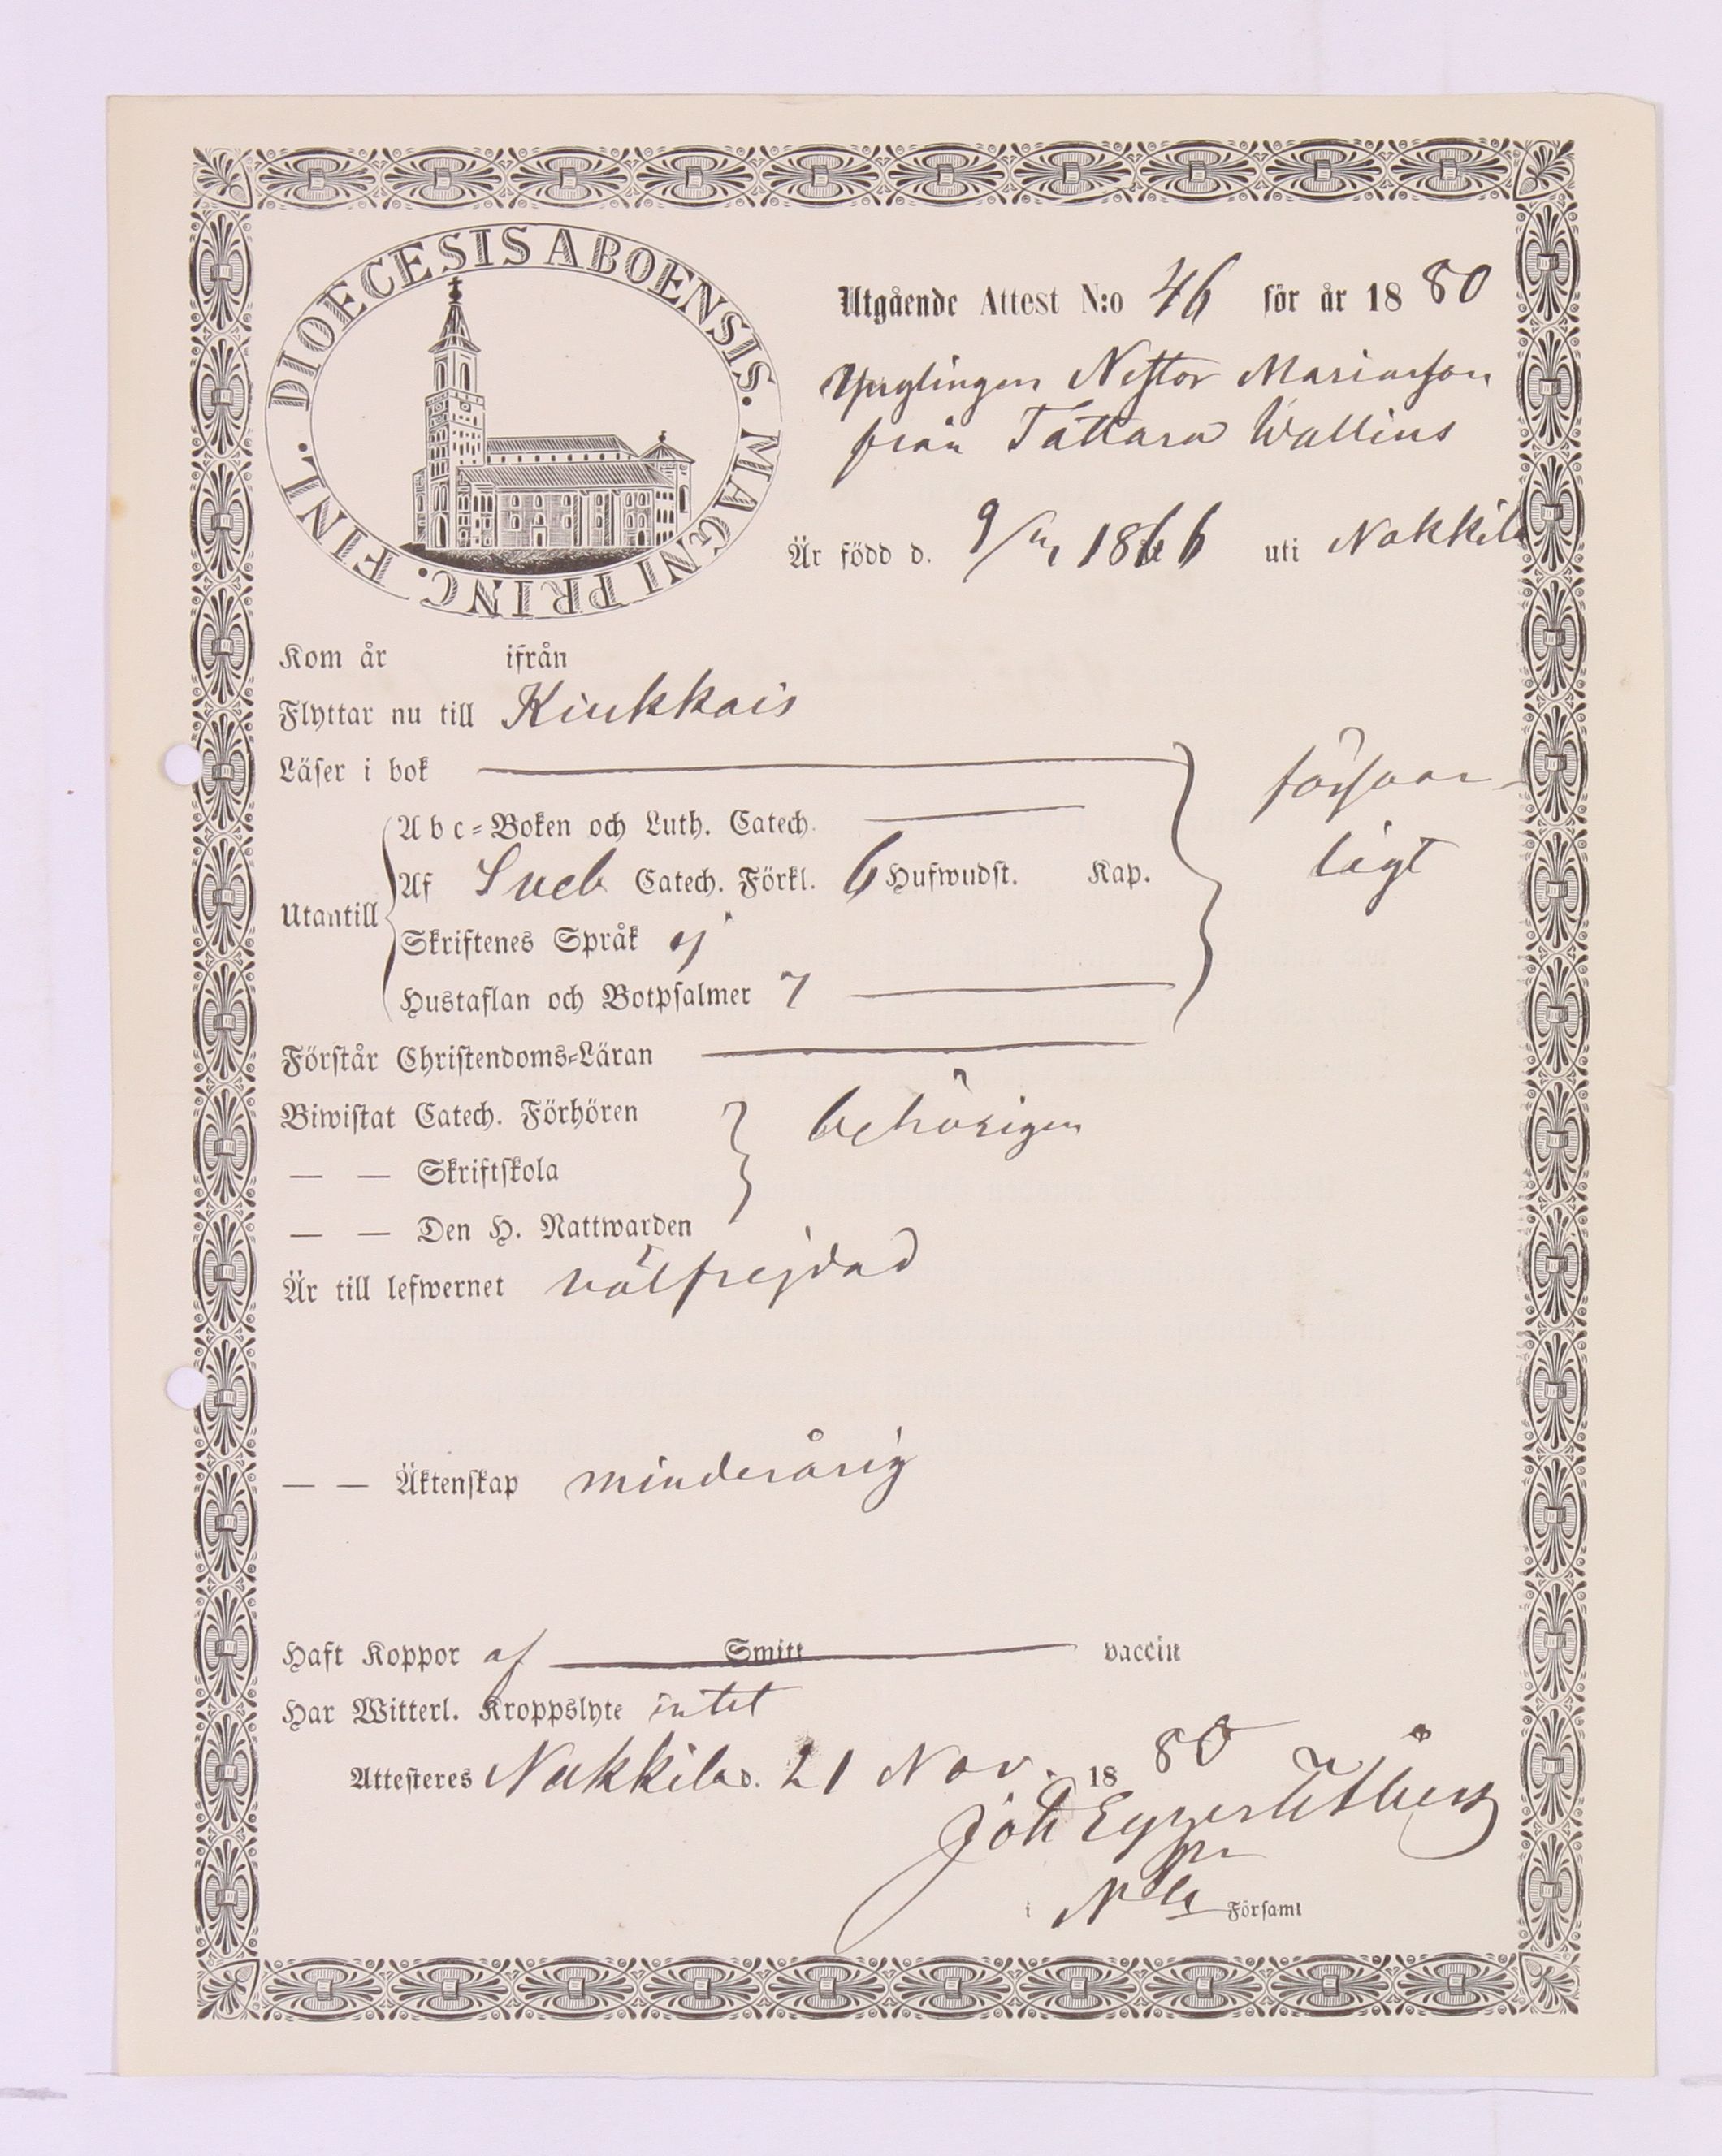 DIOECESIS ABOENSIS. MAGNI PRINC. FINL.
Utgående Attest N:o 46 för år 1880
Ynglingen Nestor Mariansson
från Tattara Wallins
Är född d. 9/ 1866 uti Nakkila
Kom år ifrån
Flyttar nu till Kiukkais
Läser i bok
försvar-
Abc-Boken och Luth. Catech.
ligt
Af Sveb Catech. Förkl. 6 Hufwudst. Kap.
Utantill
Skriftenes Språk ej
Hustaflan och Botpsalmer 7
Förstår Christendoms-Läran
Biwistat Catech. Förhören
behörigen
— — Skriftskola
— — Den H. Nattwarden
Är till lefwernet välfrejdad
— — Äktenskap minderårig
Haft Koppor af Smitt vaccin
Har Witterl. Kroppslyte intet
Attesteres Nakkila d. 21 Nov. 1880
Joh Eggert
i Nla Församl